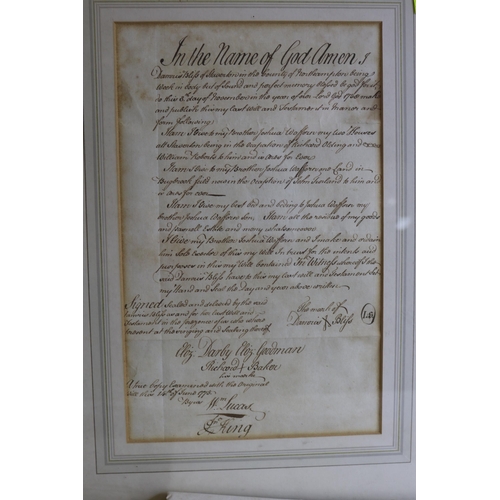 In the Name of God Amen I
Damaris Bliss of Staverton in the County of Northampton being
Weak in body but of Sound and perfect memory blessed be god for it
do this 6 day of November in the year of our Lord God 1760 make
and publish this my last will and Testament in manner and
form following:
Item I Give to my Brother Joshua Wafforn my two Houses
att Staverton being in the Occupation of Richard Olding and
William Roberts to him and is heirs for Ever
Item I Give to my Brother Joshua Wafforn my Land in
Bugbrook field now in the Occupation of John Garland to him and
is heirs for ever
Item I Give my best bed and bedding to Joshua Wafforn my
brother Joshua Wafforns Son, Item all the residue of my goods
and parsonall Estate and mony whatsomever
I Give my Brother Joshua Wafforn and I make and ordain
him Sole of this my Will In trust for the intents and
purposes in this my Will Contained In Witness whereof I the
said Damaris Bliss have to this my last will and Testament set
my Hand and Seal the Day and year above written
Signed Sealed and delivered by the said
Damaris Bliss as and for her last Will and
Testament in the presence of us who where
present at the signing and Sealing thereof
The mark of
Damaris X Bliss
LS
Eliz Darby Eliz Goodman
Richard X Baker
his mark
A true Copy Examined with the Original
Will this 14th of June 1773
By us
Wm Lucas
King